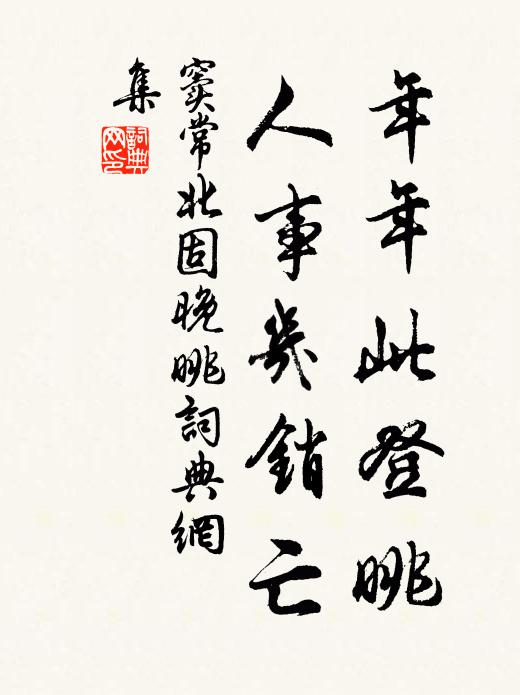 年年此登眺
人事幾銷亡
竇常北固晚眺詞典網
集
詞典
网印